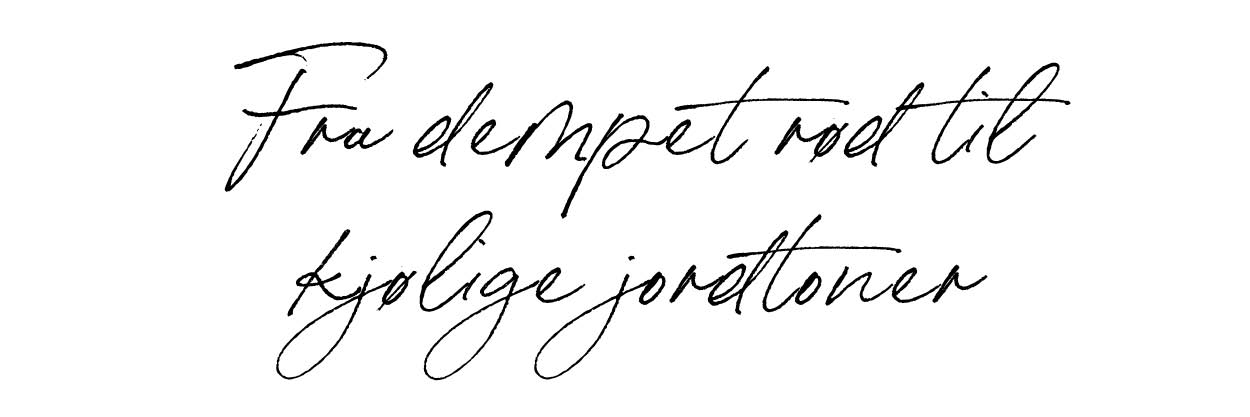 Fra dempet rød til
kjølige jordtoner